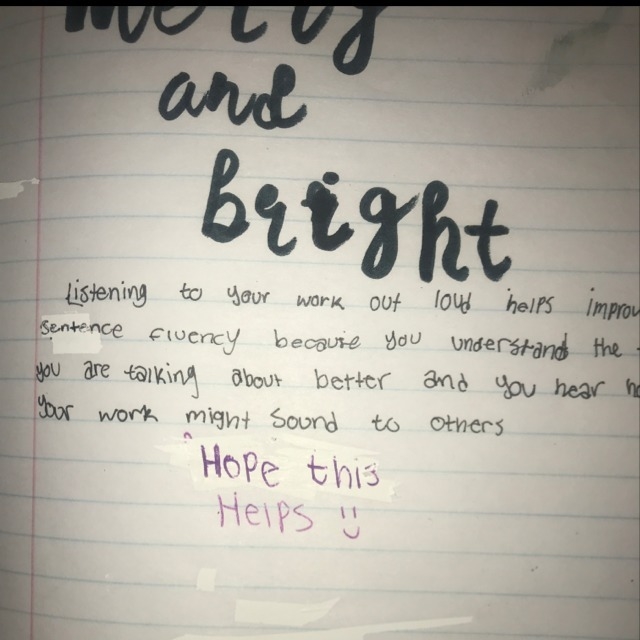 Merry
and
bright
Listening to your work out loud helps improv
sentence fluency because you understand the
you are talking about better and you hear ho
Your work might Sound to others
Hope this
Helps !!